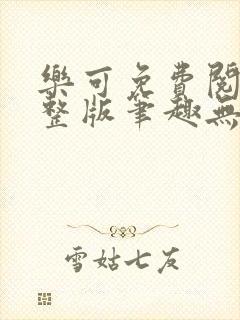 樂可免費閱
整版筆趣無
雪姑七友